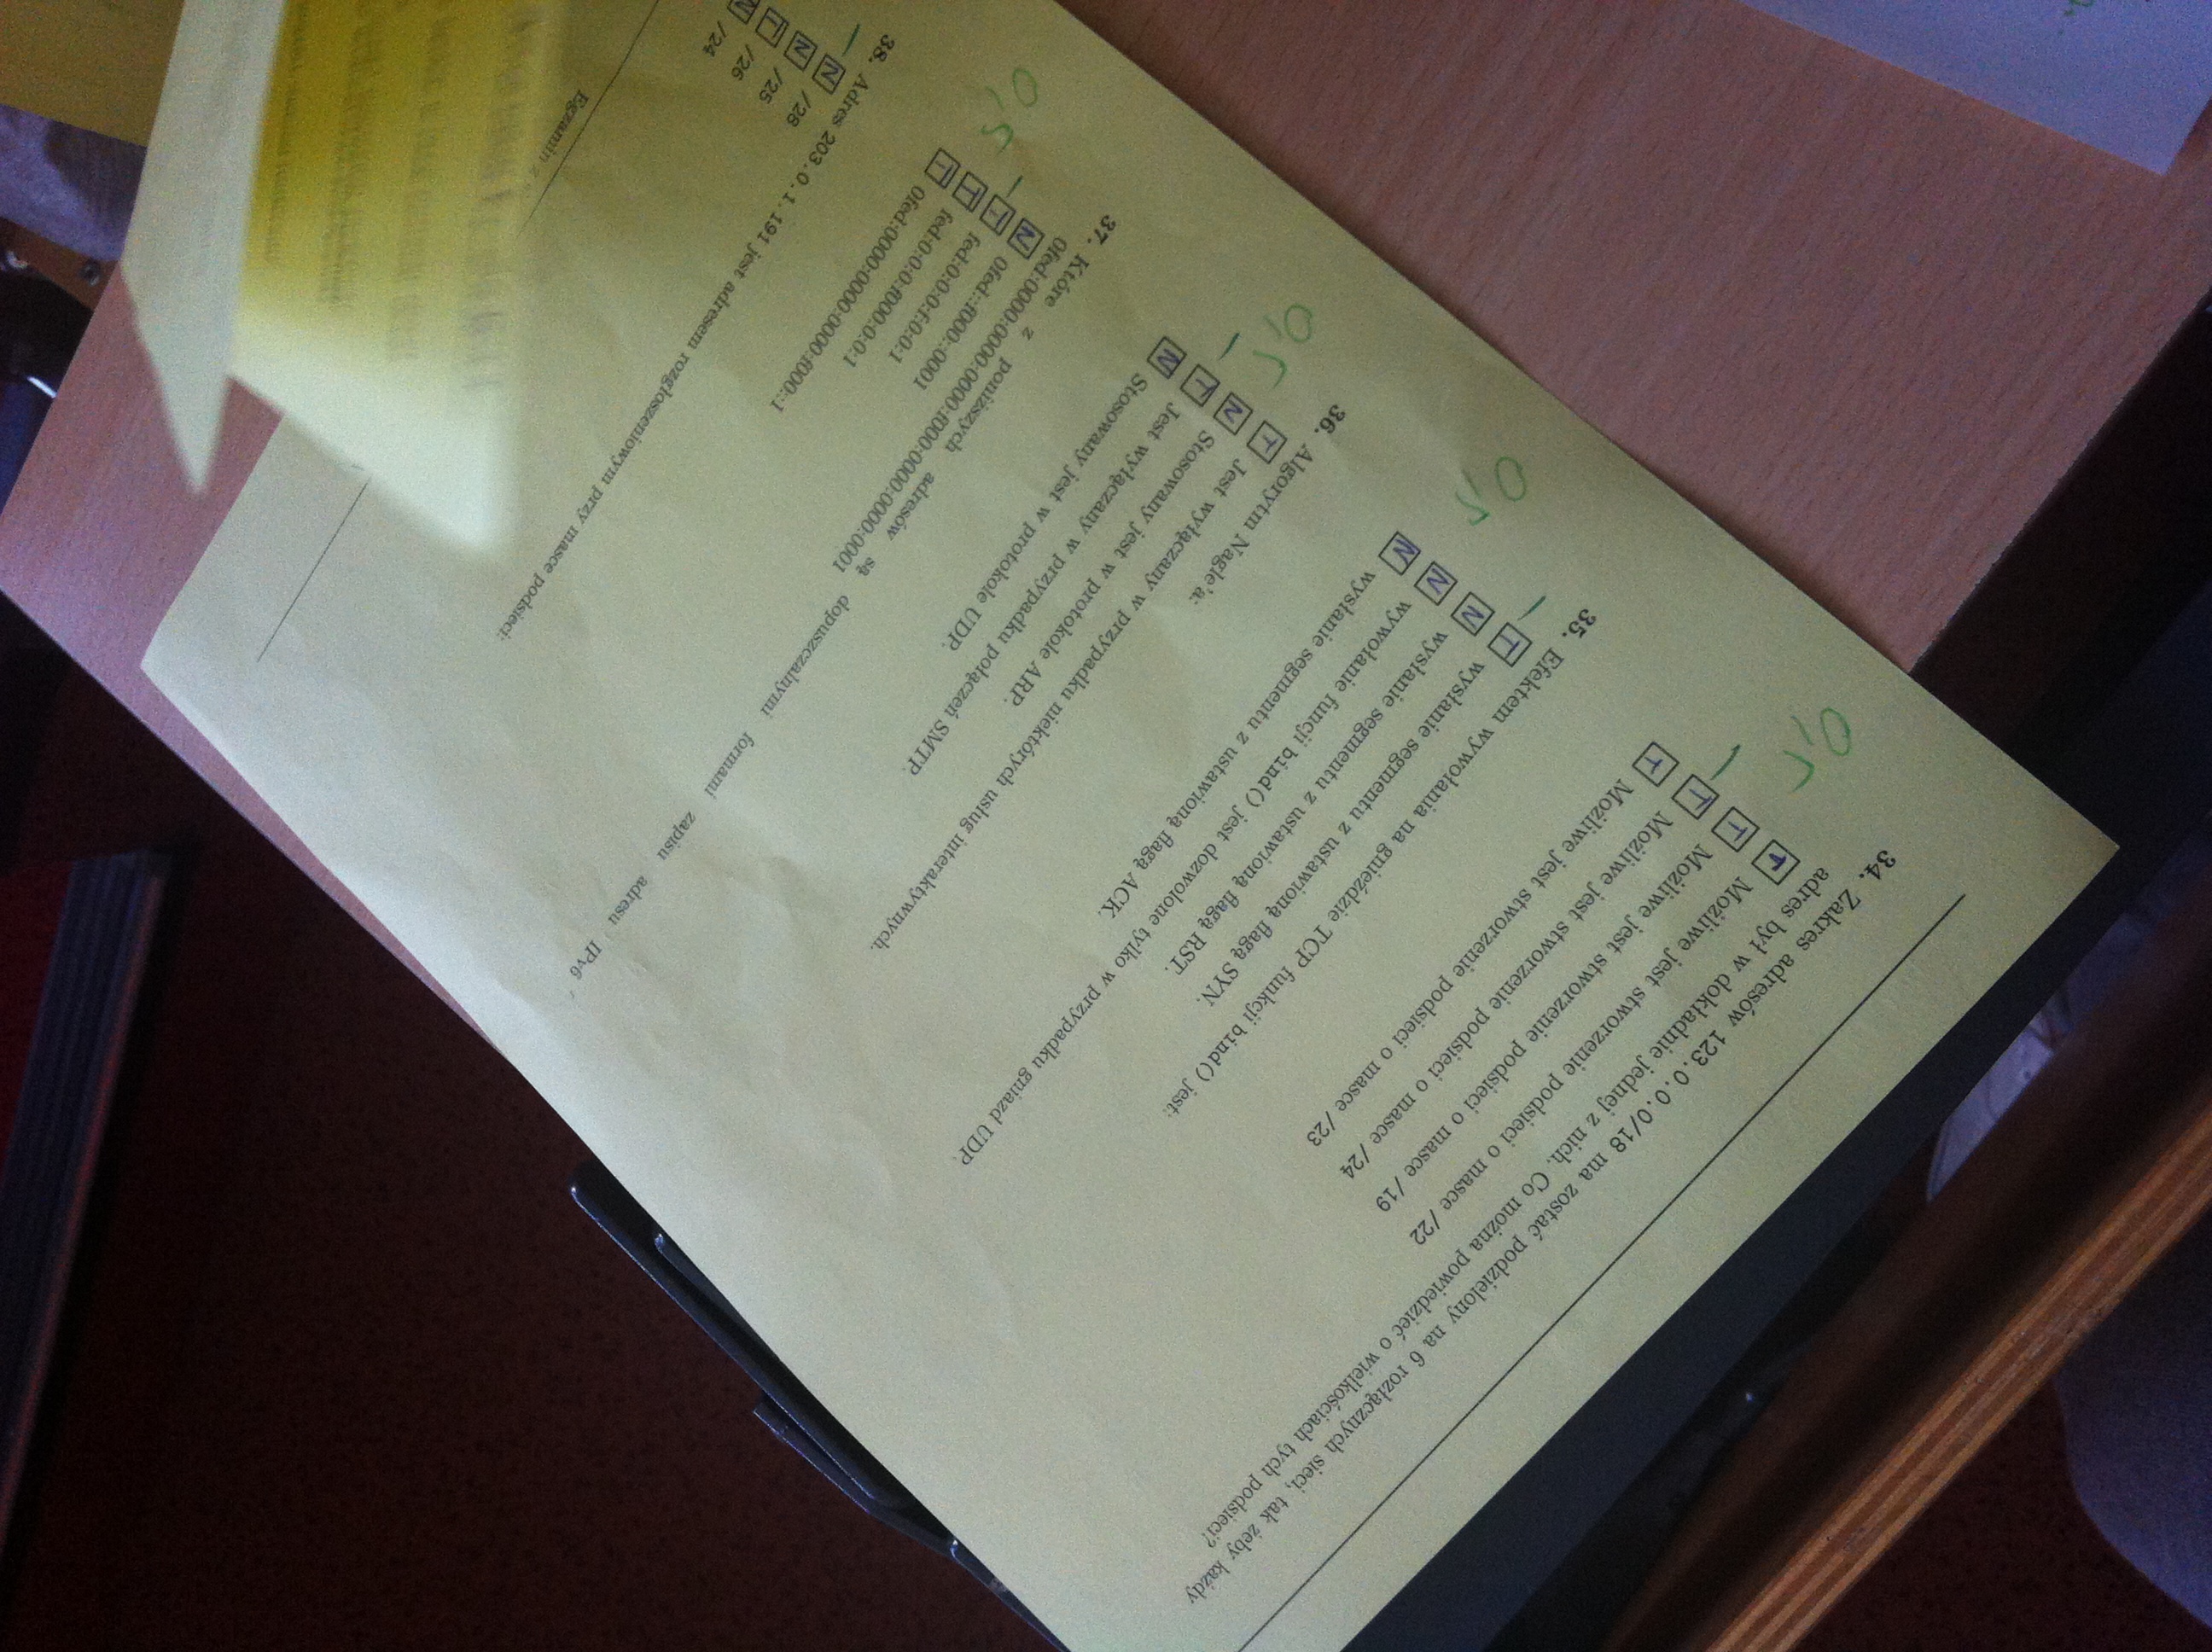 34. Zakres adresów 123.0.0.0/18 ma zostać podzielony na 6 rozłącznych sieci, tak żeby każdy
adres był w dokładnie jednej z nich. Co można powiedzieć o wielkościach tych podsieci?
T Możliwe jest stworzenie podsieci o masce /22
T Możliwe jest stworzenie podsieci o masce /19
T Możliwe jest stworzenie podsieci o masce /24
T Możliwe jest stworzenie podsieci o masce /23
0,5
35. Efektem wywołania na gnieździe TCP funkcji bind() jest:
T wysłanie segmentu z ustawioną flagą SYN.
N wysłanie segmentu z ustawioną flagą RST.
N wywołanie funcji bind() jest dozwolone tylko w przypadku gniazd UDP.
N wysłanie segmentu z ustawioną flagą ACK.
0,5
36. Algorytm Nagle'a:
T Jest wyłączany w przypadku niektórych usług interaktywnych.
N Stosowany jest w protokole ARP.
T Jest wyłączany w przypadku połączeń SMTP.
N Stosowany jest w protokole UDP.
0,5
37. Które z poniższych adresów są dopuszczalnymi formami zapisu adresu IPv6
0fed:0000:0000:0000:f000:0000:0000:0001
N 0fed::f000::0001
T fed:0:0:0:f:0:0:1
T fed:0:0:0:f000:0:0:1
T 0fed:0000:0000:0000:f000::1
0,5
38. Adres 203.0.1.191 jest adresem rozgłoszeniowym przy masce podsieci:
N /28
N /25
T /26
N /24
Egzamin z